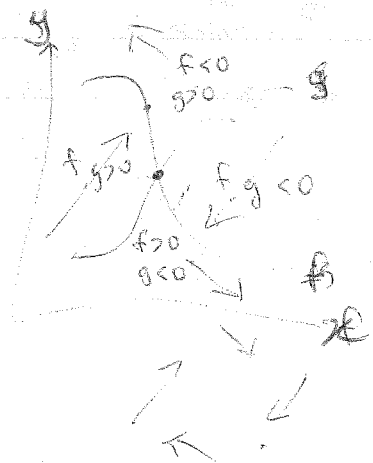 y
f<0
g>0
g
f g>0
f g<0
f>0
g<0
f
x